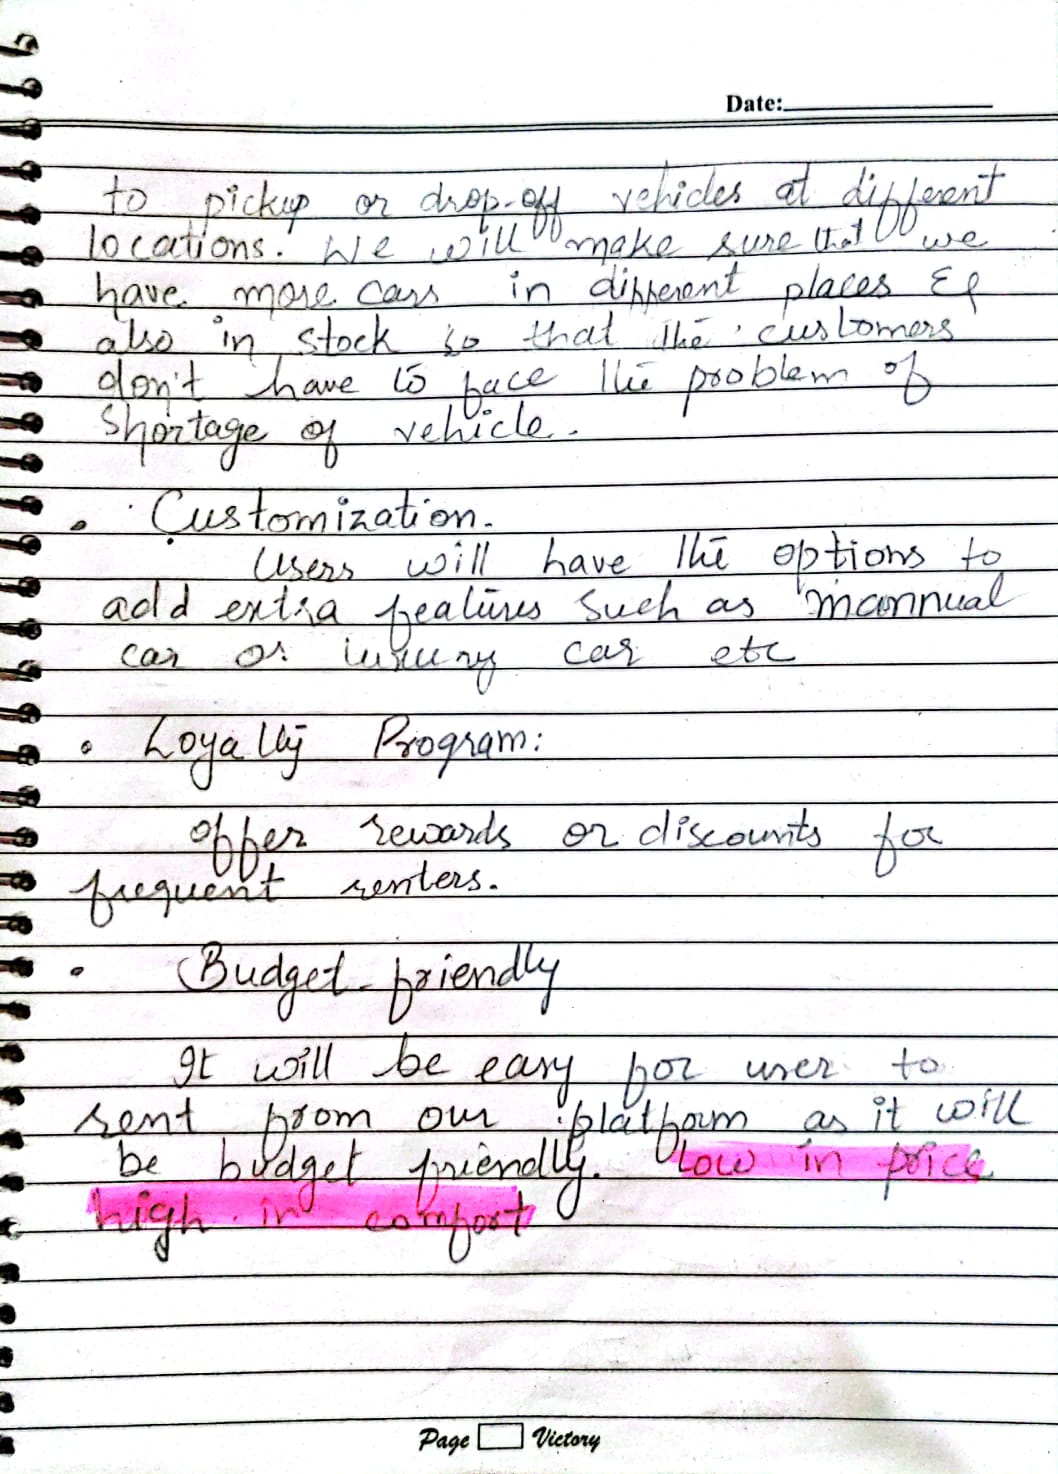 Date:
to pickup or drop-off vehicles at different
locations. We will make sure that we
have more cars in different places &
also in stock so that the customers
don't have to face the problem of
shortage of vehicle.
• Customization.
Users will have the options to
add extra features such as mannual
car or luxury car etc
• Loyalty Program:
offer rewards or discounts for
frequent renters.
• Budget-friendly
It will be easy for user to
rent from our platform as it will
be budget friendly. low in price
high in comfort
Page Victory